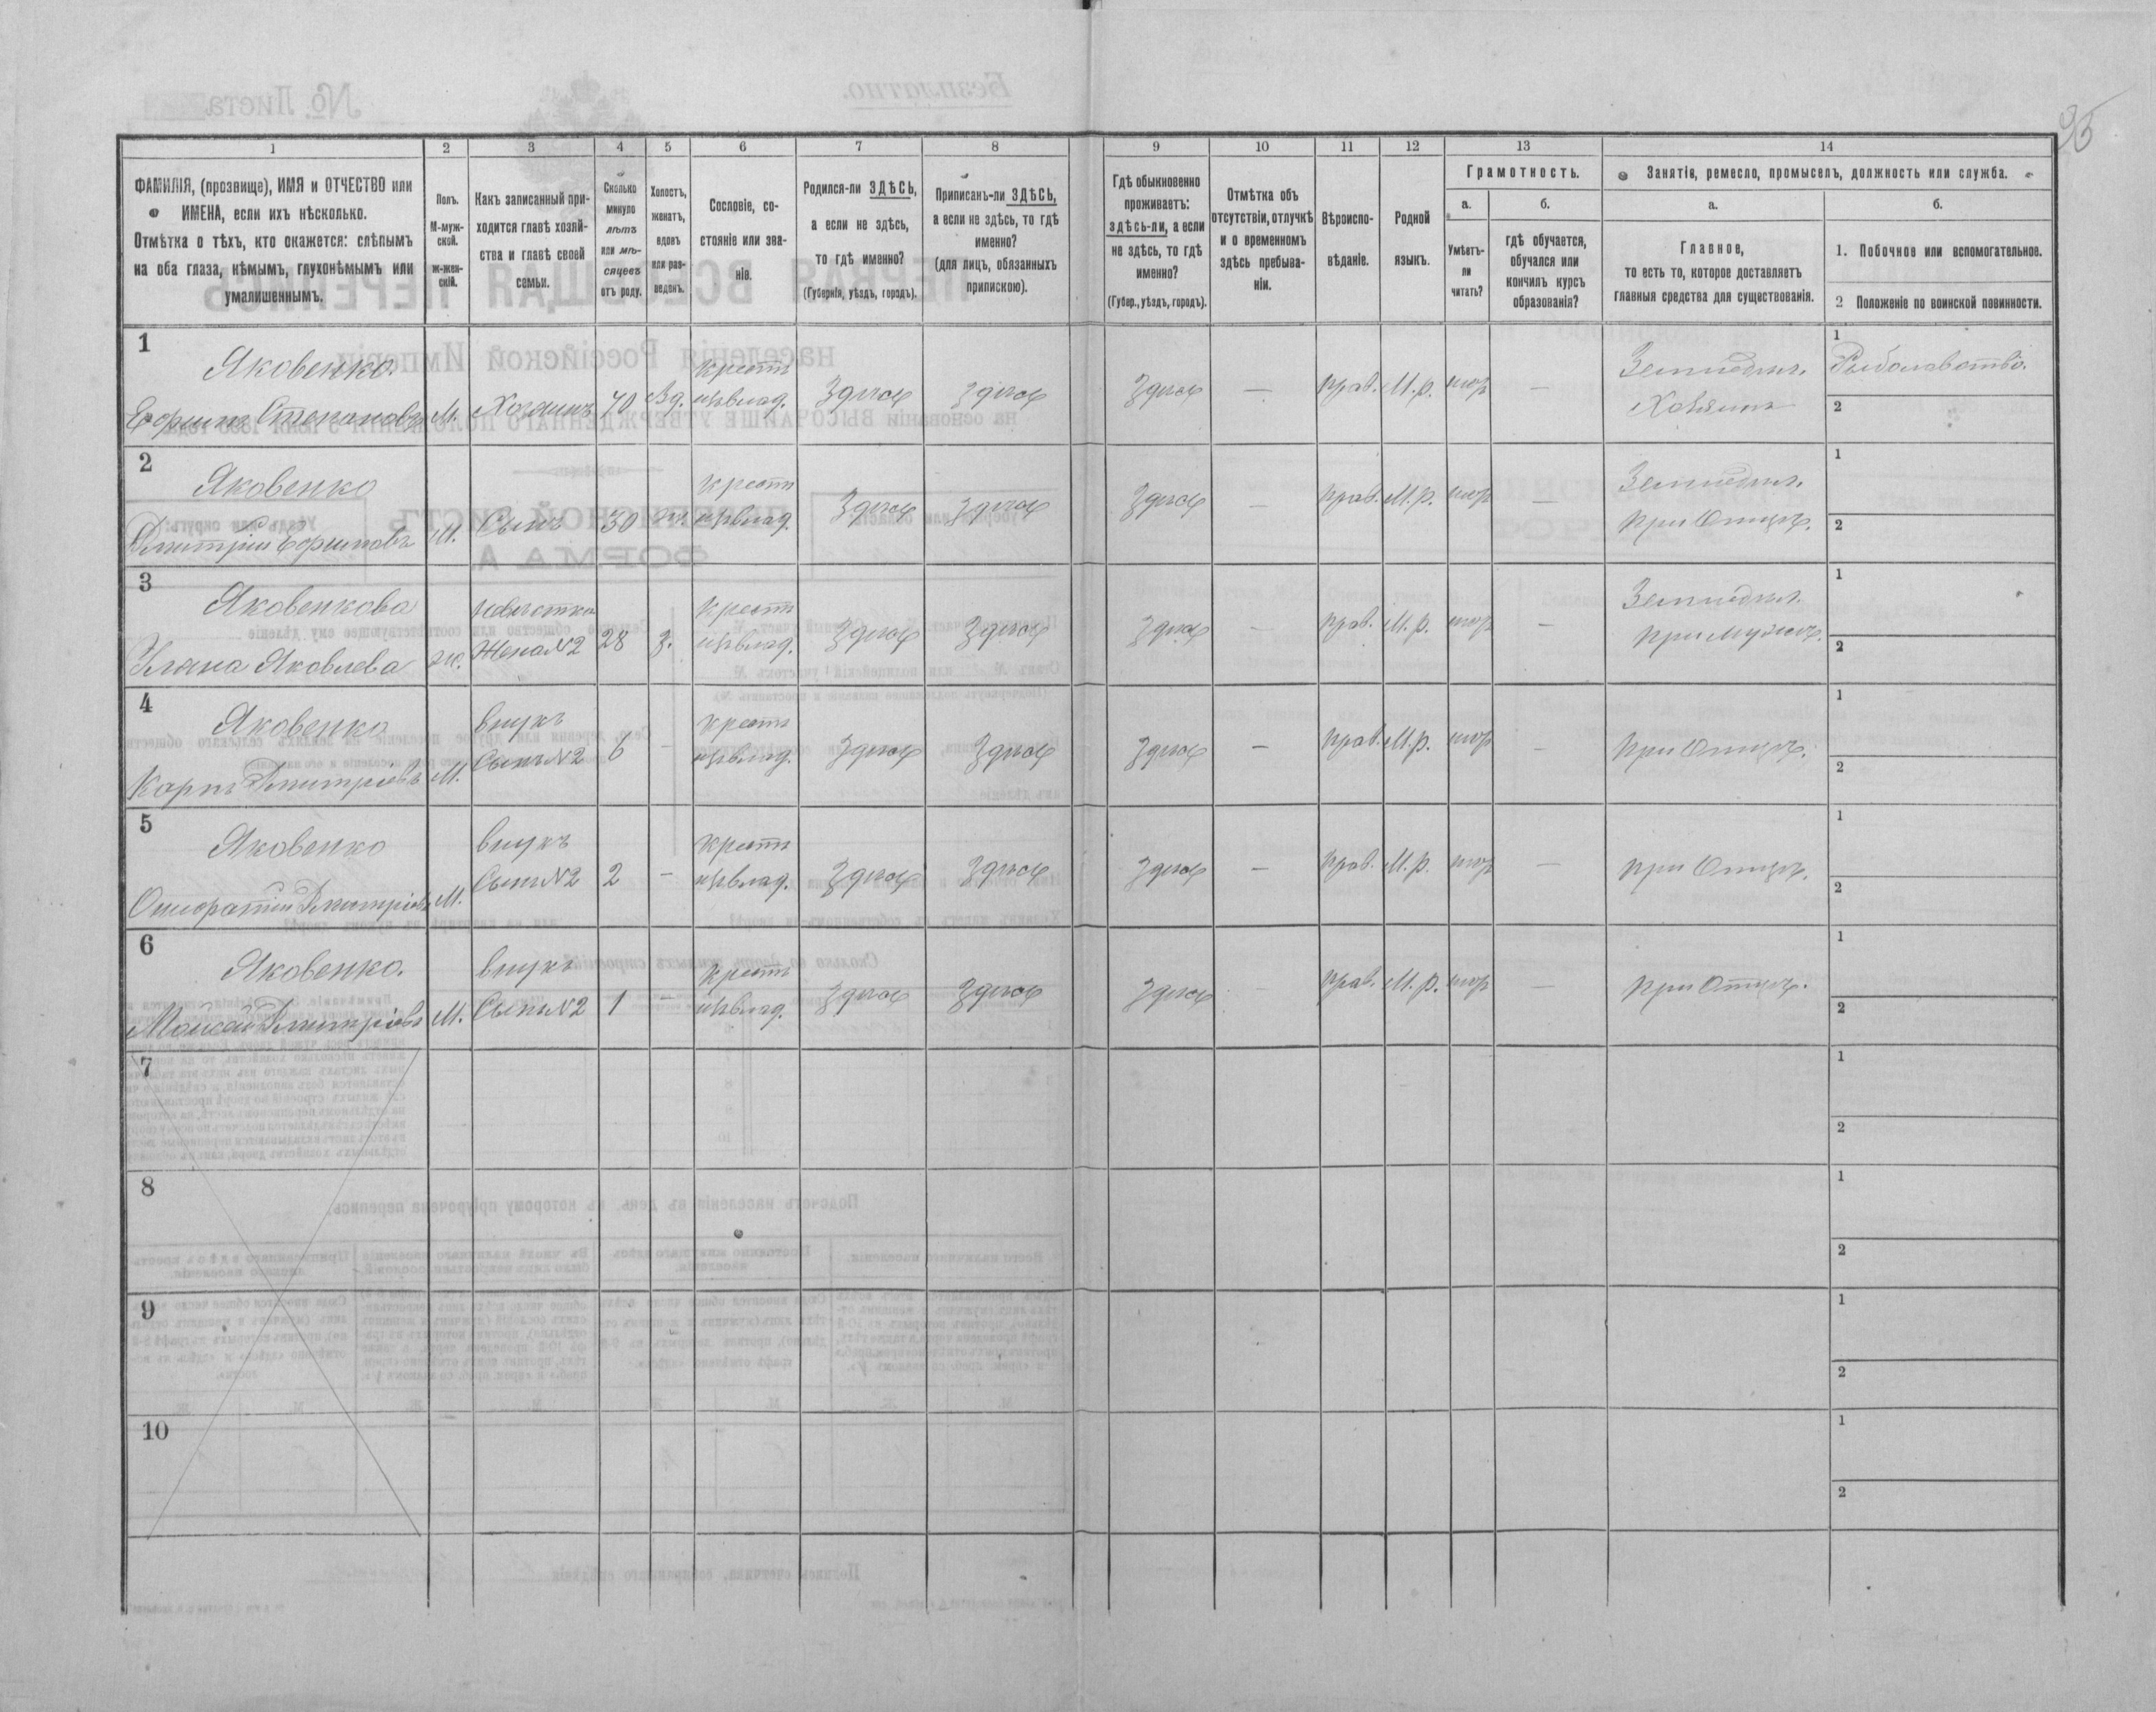 95
1
2
3
4
5
6
7
8
9
10
11
12
13
14
ФАМИЛІЯ, (прозвище), ИМЯ и ОТЧЕСТВО или
ИМЕНА, если ихъ нѣсколько.
Отмѣтка о тѣхъ, кто окажется: слѣпымъ
на оба глаза, нѣмымъ, глухонѣмымъ или
умалишеннымъ.
Полъ.
М-муж-
ской.
ж-жен-
скій.
Какъ записанный при-
ходится главѣ хозяй-
ства и главѣ своей
семьи.
Сколько
минуло
лѣтъ
или мѣ-
сяцевъ
отъ роду.
Холостъ,
женатъ,
вдовъ
или раз-
веденъ.
Сословіе, со-
стояніе или зва-
ніе.
Родился-ли ЗДѢСЬ,
а если не здѣсь,
то гдѣ именно?
(Губернія, уѣздъ, городъ).
Приписанъ-ли ЗДѢСЬ,
а если не здѣсь, то гдѣ
именно?
(для лицъ, обязанныхъ
припискою).
Гдѣ обыкновенно
проживаетъ:
здѣсь-ли, а если
не здѣсь, то гдѣ
именно?
(Губер., уѣздъ, городъ).
Отмѣтка объ
отсутствіи, отлучкѣ
и о временномъ
здѣсь пребыва-
ніи.
Вѣроиспо-
вѣданіе.
Родной
языкъ.
Грамотность.
а.
Умѣетъ-
ли
читать?
б.
гдѣ обучается,
обучался или
кончилъ курсъ
образованія?
Занятіе, ремесло, промыселъ, должность или служба.
а.
Главное,
то есть то, которое доставляетъ
главныя средства для существованія.
б.
1. Побочное или вспомогательное.
2 Положеніе по воинской повинности.
1
Яковенко
Ефимъ Степановъ
М. Хозяинъ 70 Вд.
крест
Здѣсь Здѣсь Здѣсь — прав. М.р. —
Земледѣл.
Хозяинъ
1
Рыболовство.
2
2
Яковенко
Дмитрій Ефимовъ
М. Сынъ 30
крест
Здѣсь Здѣсь Здѣсь — прав. М.р. —
Земледѣл.
при Отцѣ.
1
2
3
Яковенкова
Уляна Яковлева
ж.
Невѣстка
Жена №2 28 З.
крест
Здѣсь Здѣсь Здѣсь — прав. М.р. —
Земледѣл.
при Мужѣ.
1
2
4
Яковенко
Карпъ Дмитріевъ
М.
внукъ
Сынъ №2 6 —
крест
Здѣсь Здѣсь Здѣсь — прав. М.р. —
при Отцѣ.
1
2
5
Яковенко
Дмитріевъ
М.
внукъ
Сынъ №2 2 —
крест
Здѣсь Здѣсь Здѣсь — прав. М.р. —
при Отцѣ.
1
2
6
Яковенко.
Моисей Дмитріевъ
М.
внукъ
Сынъ №2 1 —
крест
Здѣсь Здѣсь Здѣсь прав. М.р. —
при Отцѣ.
1
2
7
1
2
8
1
2
9
1
2
10
1
2